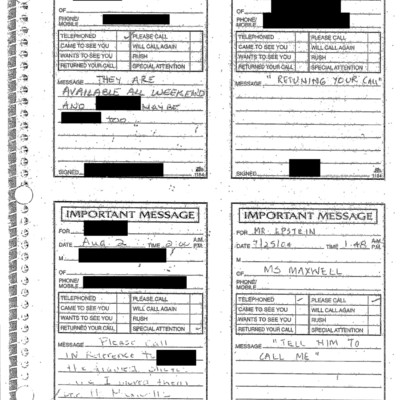 OF
PHONE/
MOBILE
TELEPHONED ✓ PLEASE CALL
CAME TO SEE YOU WILL CALL AGAIN
WANTS TO SEE YOU RUSH
RETURNED YOUR CALL SPECIAL ATTENTION
MESSAGE THEY ARE
AVAILABLE ALL WEEKEND
AND MAYBE
TOO
SIGNED
1184
PHONE/
MOBILE
TELEPHONED PLEASE CALL
CAME TO SEE YOU WILL CALL AGAIN
WANTS TO SEE YOU RUSH
RETURNED YOUR CALL SPECIAL ATTENTION
MESSAGE "RETUNING YOUR CALL"
SIGNED
1184
IMPORTANT MESSAGE
FOR
DATE Aug 2 TIME 2:00 A.M.
P.M.
M
OF
PHONE/
MOBILE
TELEPHONED PLEASE CALL
CAME TO SEE YOU WILL CALL AGAIN
WANTS TO SEE YOU RUSH
RETURNED YOUR CALL SPECIAL ATTENTION ✓
MESSAGE Please call
IN Reference to
the
I moved them
IMPORTANT MESSAGE
FOR MR. EPSTEIN
DATE 7/25/04 TIME 1:48 A.M.
P.M.
M
OF MS MAXWELL
PHONE/
MOBILE
TELEPHONED ✓ PLEASE CALL ✓
CAME TO SEE YOU WILL CALL AGAIN
WANTS TO SEE YOU RUSH
RETURNED YOUR CALL SPECIAL ATTENTION
MESSAGE "TELL HIM TO
CALL ME"